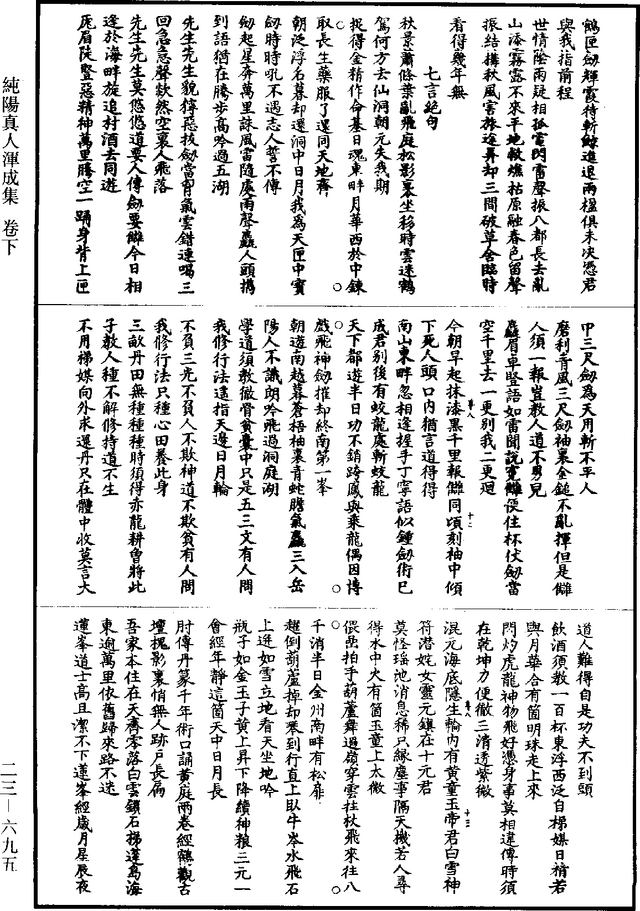 鶴匣劍輝霞待斬鯨進退兩楹俱未決憑君
與我指前程
世情險兩疑相孤電閃雷聲振八都長去亂
山漆霧露不來平地救燋枯原融春色留聲
振結搆秋風害旅途昇却三間破草舍臨時
看得幾年無
七言絕句
秋景蕭條葉亂飛庭松影裏坐移時雲迷鶴
駕何方去仙洞朝元失我期
捉得金精作命基日魂東畔月華西於中鍊
取長生藥服了還同天地齊
朝泛浮名暮却還洞中日月我為天匣中寶
劍時時吼不遇志人誓不傳
劍起星奔萬里誅風雷隨處雨聲麤人頭携
到語猶在騰步高吟過五湖
先生先生貌獰惡拔劍當胷氣雲錯連喝三
回急急聲欻然空裏人飛落
先生先生莫悠悠道要人傳劍要讎今日相
逢於海畔旋追村酒去同遊
厖眉陡豎惡精神萬里騰空一踊身背上匣
中三尺劍為天用斬不平人
磨利青風三尺劍袖裏金鎚不亂揮但是讎
人須一報豈教人道不男兒
麤眉卓豎語如雷聞說寃讎便住杯仗劍當
空千里去一更別我二更迴
今朝早起抹漆黑千里報讎同頃刻袖中傾
十二
下死人頭口內猶言道得得
南山東畔忽相逢握手丁寧語似鍾劍術已
成君別後有蛟龍處斬蛟龍
天下都遊半日功不銷跨鳳與乘龍偶因博
戲飛神劍摧却終南第一峯
朝遊南越暮蒼梧袖裏青蛇膽氣麤三入岳
陽人不識朗吟飛過洞庭湖
學道須教徹骨貧囊中只是五三文有人問
我修行法遙指天邊日月輪
不負三光不負人不欺神道不欺貧有人問
我修行法只種心田養此身
三畝丹田無種種種時須得赤龍耕曾將此
子教人種不解修持道不生
不用梯媒向外求還丹只在體中收莫言大
道人難得自是功夫不到頭
飲酒須教一百杯東浮西泛自梯媒日精若
與月華合有箇明珠走上來
閃灼虎龍神物飛好憑身事莫相違傳時須
在乾坤力便徹三清透紫微
混元海底隱生輪內有黄童玉帝君白雪神
十三
符潛姹女靈元鎮在十元君
莫怪瑤池消息稀只緣塵事隔天機若人尋
得水中火有箇玉童上太微
偎岳拍手葫蘆舞過嶺穿雲拄杖飛來往八
千消半日金州南畔有松扉
趒倒葫蘆掉却琴到行直上臥牛岑水飛石
上迸如雪立地看天坐地吟
瓶子如金玉子黃上昇下降續神糧三元一
會經年靜這箇天中日月長
肘傳丹篆千年術口誦黃庭兩卷經鶴觀古
壇槐影裏悄無人跡戶長扃
吾家本住在天齊零落白雲鎖石梯蓬島海
東逾萬里依舊歸來路不迷
蓮峯道士高且潔不下蓮峯經歲月星辰夜
純陽真人渾成集 卷下
二三—六九五